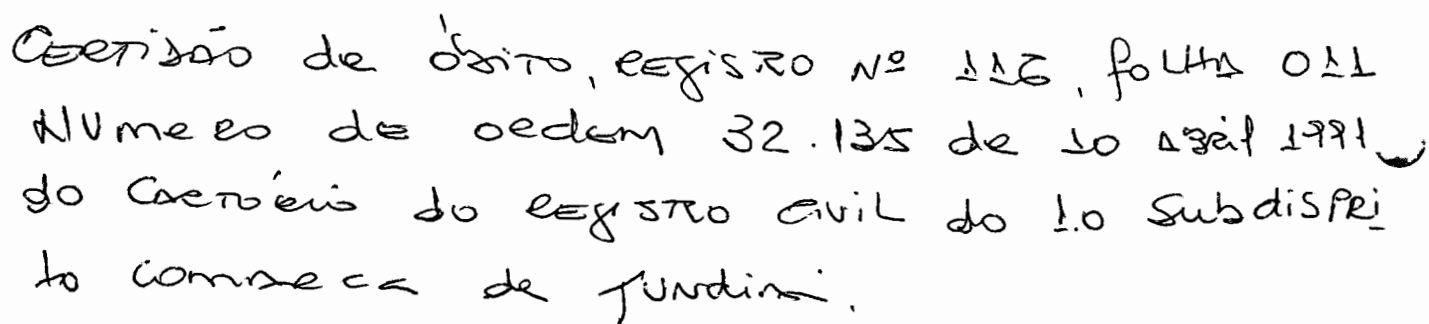 Certidão de óbito, registro Nº 116, folha 011
Numero de ordem 32.135 de 10 abril 1991
do Cartório do registro civil do 1.o Subdistri
to comarca de Jundiai.